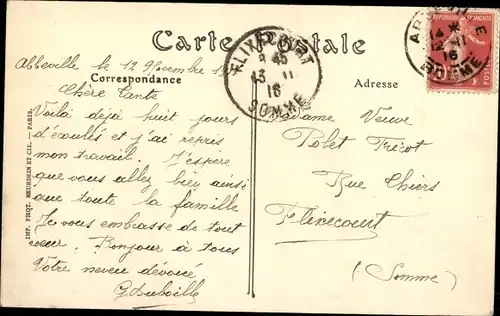 Carte Postale
Correspondance
Adresse
Abbeville le 12 Novembre
Chère Tante
Voilà déjà huit jours
d'écoulés et j'ai repris
mon travail. J'espère
que vous allez bien ainsi
que toute la famille
Je vous embrasse de tout
cœur. Bonjour à tous
Votre neveu dévoué
Madame Veuve
Polet Tricot
Rue Thiers
Flixecourt
(Somme)
FLIXECOURT
13 11
16
SOMME
14
12 11
16
SOMME
REPUBLIQUE FRANÇAISE
IMP. PHOT. NEURDEIN ET CIE. - PARIS.